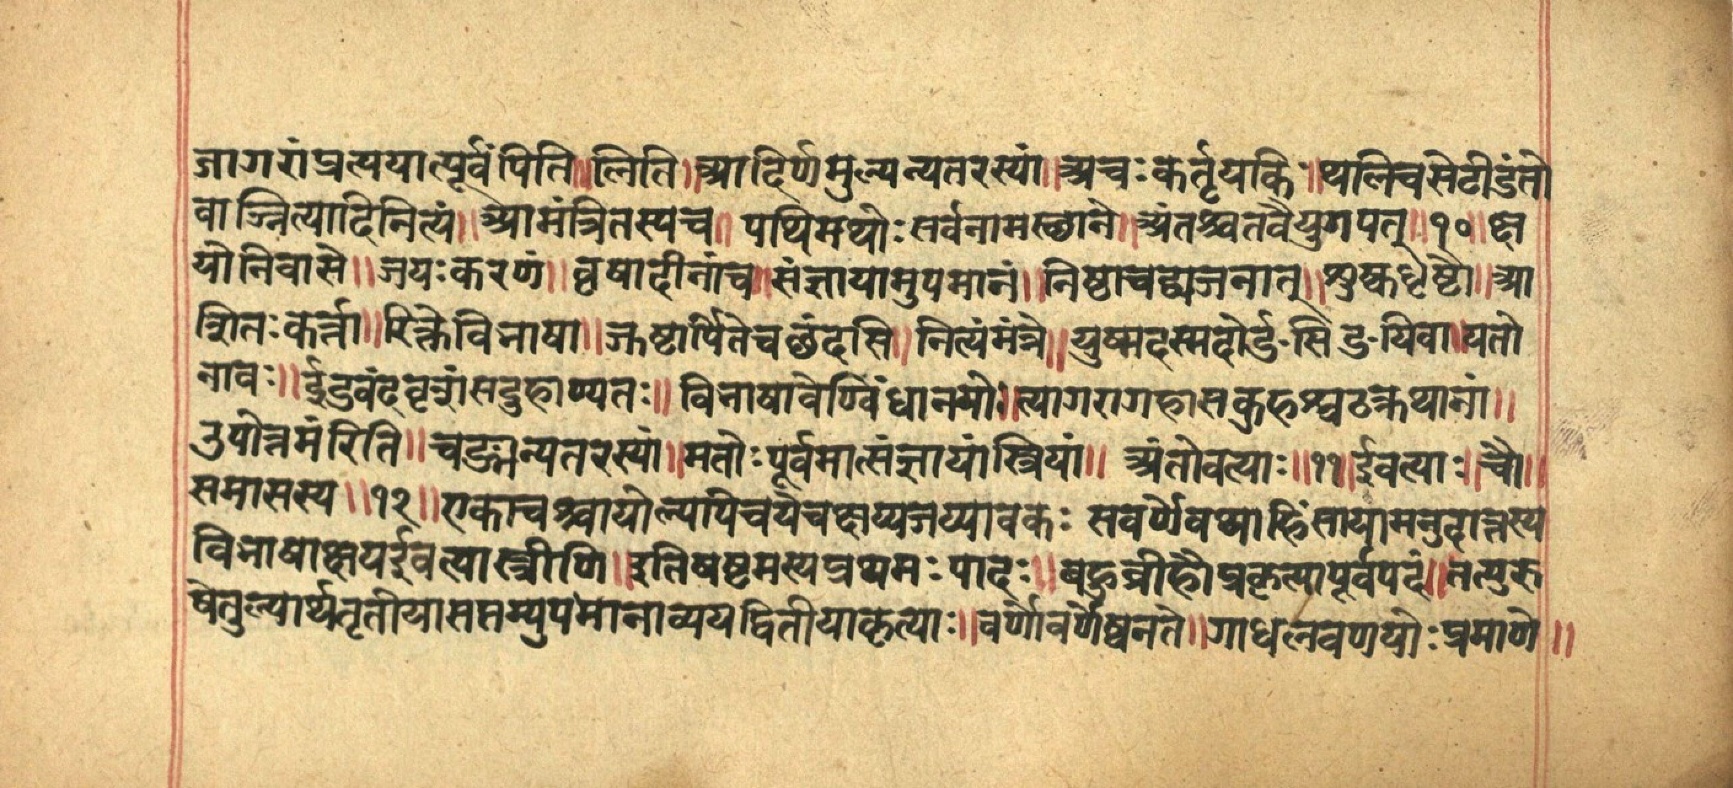 जागरांप्रत्ययात्पूर्वंपिति॥लिति॥आदिर्णमुल्यन्यतरस्यां॥अचःकर्तृयकि॥थलिचसेटीडंतो
वाञ्नित्यादिनित्यं॥आमंत्रितस्यच॥पथिमथोःसर्वनामस्थाने॥अंतश्चतवैयुगपत्॥१०॥क्ष
योनिवासे॥जयःकरणं॥वृषादीनांच॥संज्ञायामुपमानं॥निष्ठाचद्व्यजनात्॥शुष्कधृष्टौ॥आ
शितःकर्त्ता॥रिक्तेविभाषा॥जुष्टार्पितेचछंदसि॥नित्यंमंत्रे॥युष्मदस्मदोर्ङसिङयिवा॥यतो
नावः॥ईडवंदवृशंसदुहाण्यतः॥विभाषावेण्विंधानयोः॥त्यागरागहासकुहश्वठक्रथानां॥
उपोत्तमंरिति॥चङ्यन्यतरस्यां॥मतोःपूर्वमात्संज्ञायांस्त्रियां॥अंतोवत्याः॥११॥ईवत्याः॥चौ॥
समासस्य॥१२॥एकाचश्चायोल्यपिचयेचक्षय्यजय्यावकःसवर्णेवष्वाहिंसायामनुदात्तस्य
विभाषाक्षयईवत्यास्त्रीणि॥इतिषष्टमस्यप्रथमःपादः॥बहुव्रीहौप्रकृत्यापूर्वपदं॥तत्पुरु
षेतुल्यार्थतृतीयासप्तम्युपमानाव्ययद्वितीयाकृत्याः॥वर्णोवर्णेष्वनेते॥गाधलवणयोःप्रमाणे॥